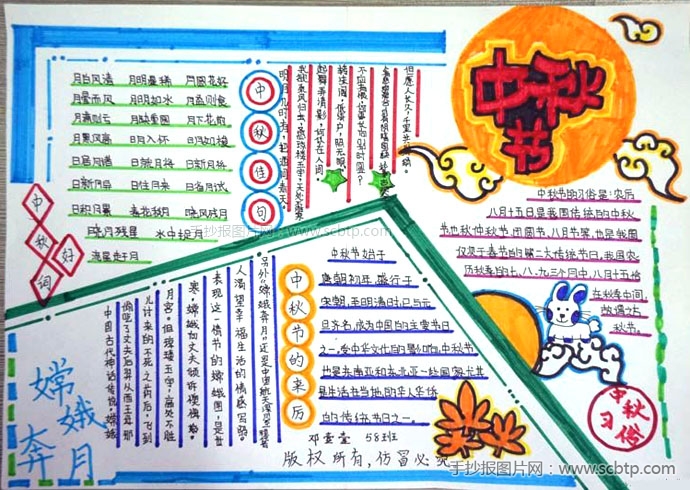 中秋节
月白风清 月明星稀 月圆花好
月晕而风 月明如水 月盈则食
月满则亏 月缺重圆 月下花前
月黑风高 日入怀 日月如梭
日居月诸 日就月将 日新月异
日新月盛 日往月来 日省月试
日积月累 春花秋月 晓风残月
晓月残星 水中捉月
流星赶月
中秋好词
中秋佳句
明月几时有，把酒问青天。
我欲乘风归去，
起舞弄清影，何似在人间。
转朱阁，低绮户，照无眠。
但愿人长久，千里共婵娟。
中秋节的习俗是：农历
八月十五日是我国传统的中秋
节也秋仲秋节、团圆节、八月节等，也是我国
仅次于春节的第二大传统节日，我国农
历秋季的七、八、九三个月中，八月十五恰
在秋季中间，
故谓之
秋节。
中秋习俗
中秋节的来历
中秋节始于
唐朝初年，盛行于
宋朝，至明清时，已与元
旦齐名，成为中国的主要节日
之一。受中华文化的影响，中秋节
也是东南亚和东北亚一些国家尤其
是生活在当地的华人华侨
的传统节日之一。
嫦娥奔月
中国古代神话传说，嫦娥
偷吃了丈夫后羿从西王母那
儿讨来的不死之药后，飞到
月宫。但琼楼玉宇，高处不胜
寒，嫦娥向丈夫倾诉懊悔
表现这一情节的嫦娥图，是世
人渴望幸福生活的情感写
邓壹壹 58班
版权所有，仿冒必究
手抄报图片网：www.scbtp.com
手抄报图片网：www.scbtp.com